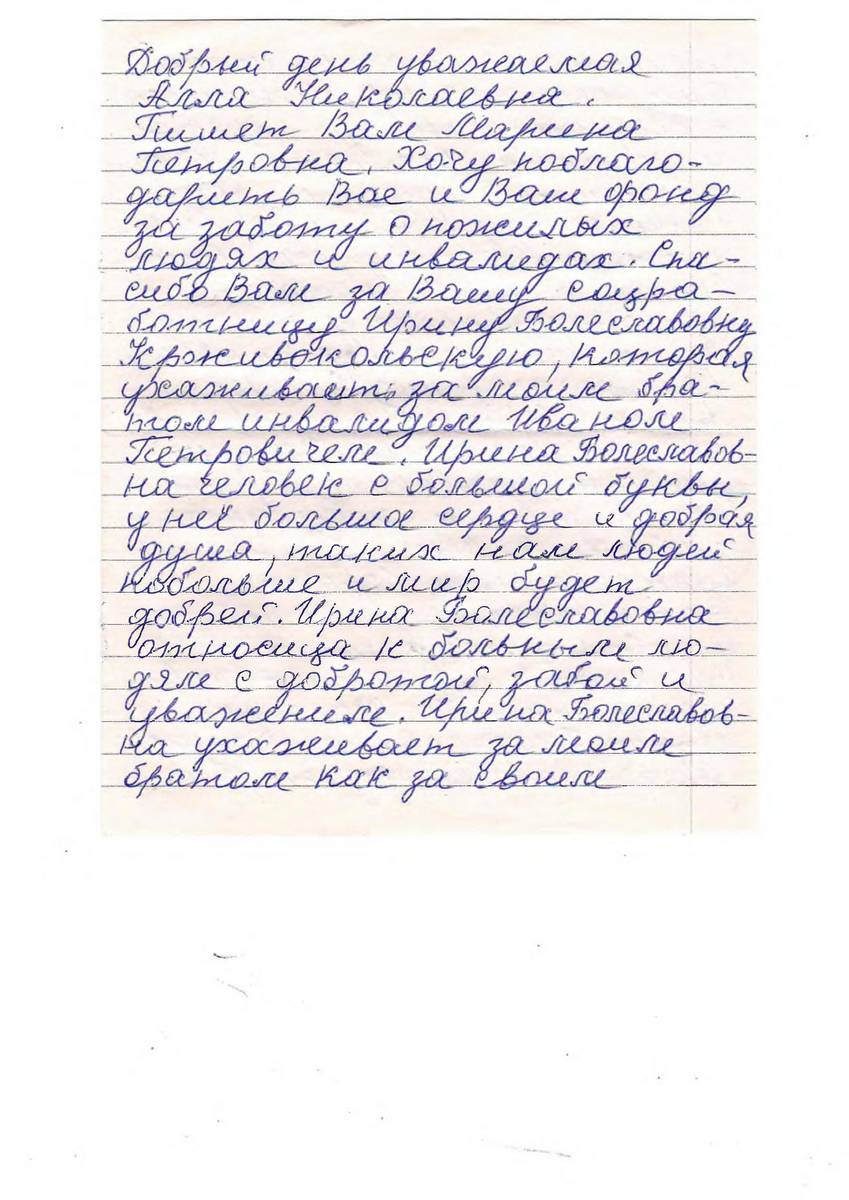 Добрый день уважаемая
Алла Николаевна.
Пишет Вам Марина
Петровна. Хочу поблаго-
дарить Вас и Ваш фонд
за заботу о пожилых
людях и инвалидах. Спа-
сибо Вам за Вашу соцра-
ботницу Ирину Болеславовну
Крживокольскую, которая
ухаживает за моим бра-
том инвалидом Иваном
Петровичем. Ирина Болеславов-
на человек с большой буквы,
у неё большое сердце и добрая
душа, таких нам людей
побольше и мир будет
добрей. Ирина Болеславовна
относица к больным лю-
дям с добротой, забой и
уважением. Ирина Болеславов-
на ухаживает за моим
братом как за своим